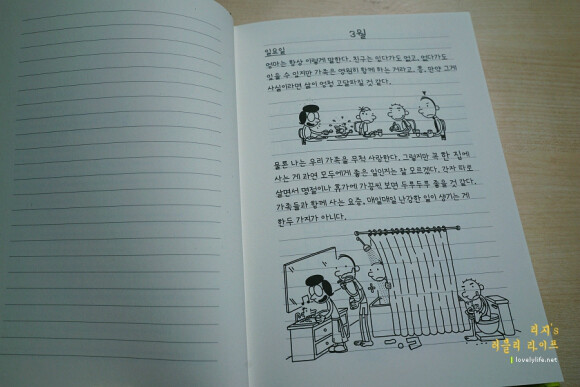 3월
일요일
엄마는 항상 이렇게 말한다. 친구는 있다가도 없고, 없다가도
있을 수 있지만 가족은 영원히 함께 하는 거라고. 흠, 만약 그게
사실이라면 삶이 엄청 고달파질 것 같다.
물론 나는 우리 가족을 무척 사랑한다. 그렇지만 꼭 한 집에
사는 게 과연 모두에게 좋은 일인지는 잘 모르겠다. 각자 따로
살면서 명절이나 휴가에 가끔씩 보면 두루두루 좋을 것 같다.
가족들과 함께 사는 요즘, 매일매일 난감한 일이 생기는 게
한두 가지가 아니다.
리지's
러블리 라이프
lovelylife.net